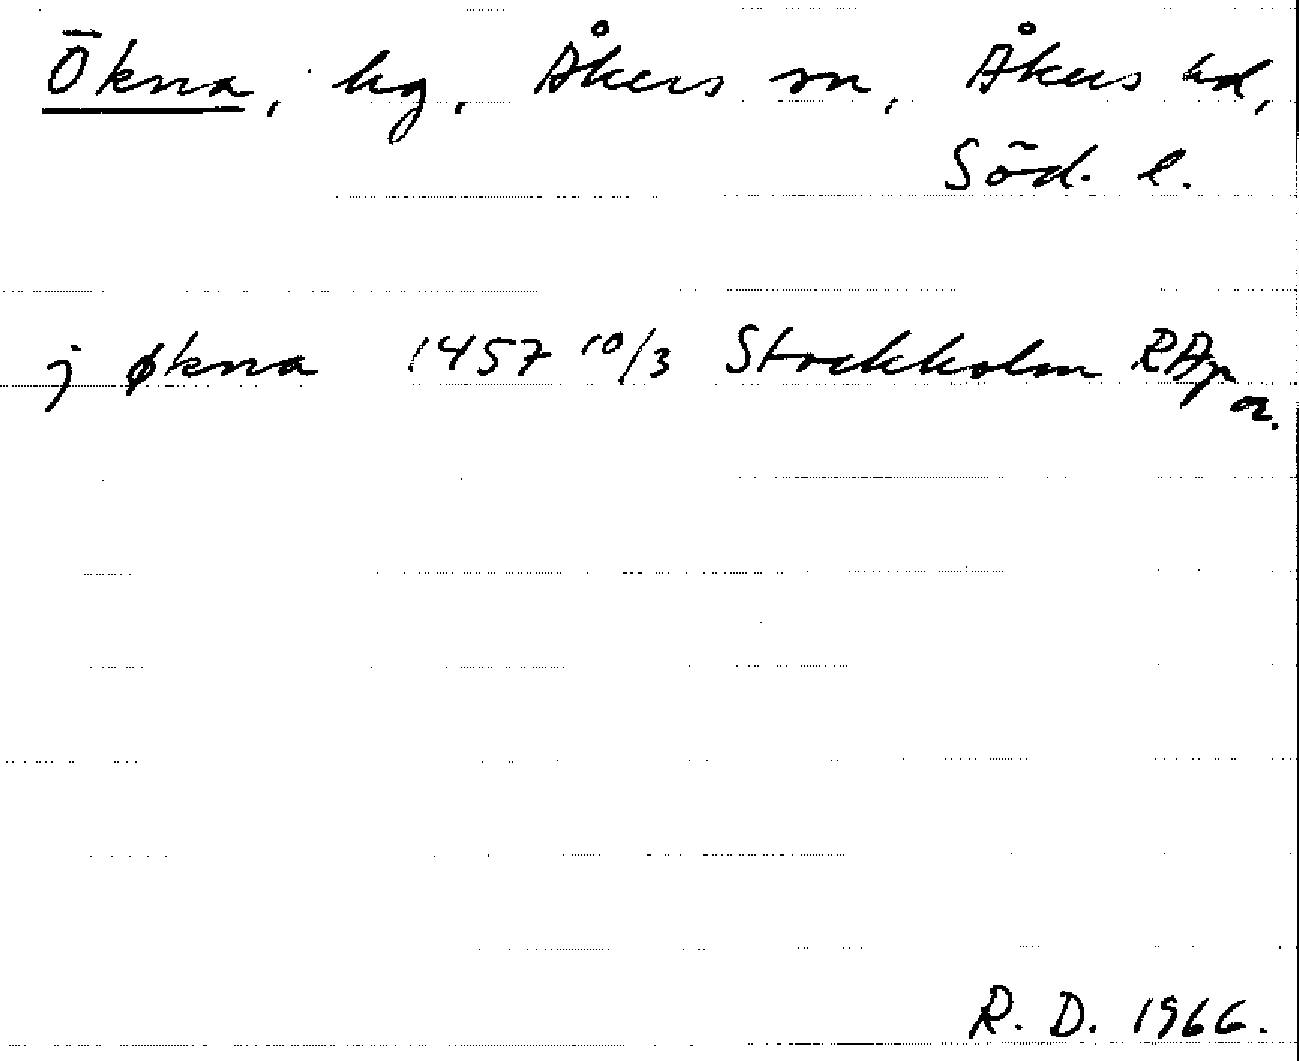 Ökna, hg, Åkers sn, Åkers hd,
Söd. l.
j økna 1457 10/3 Stockholm RAp
or.
R. D. 1966.